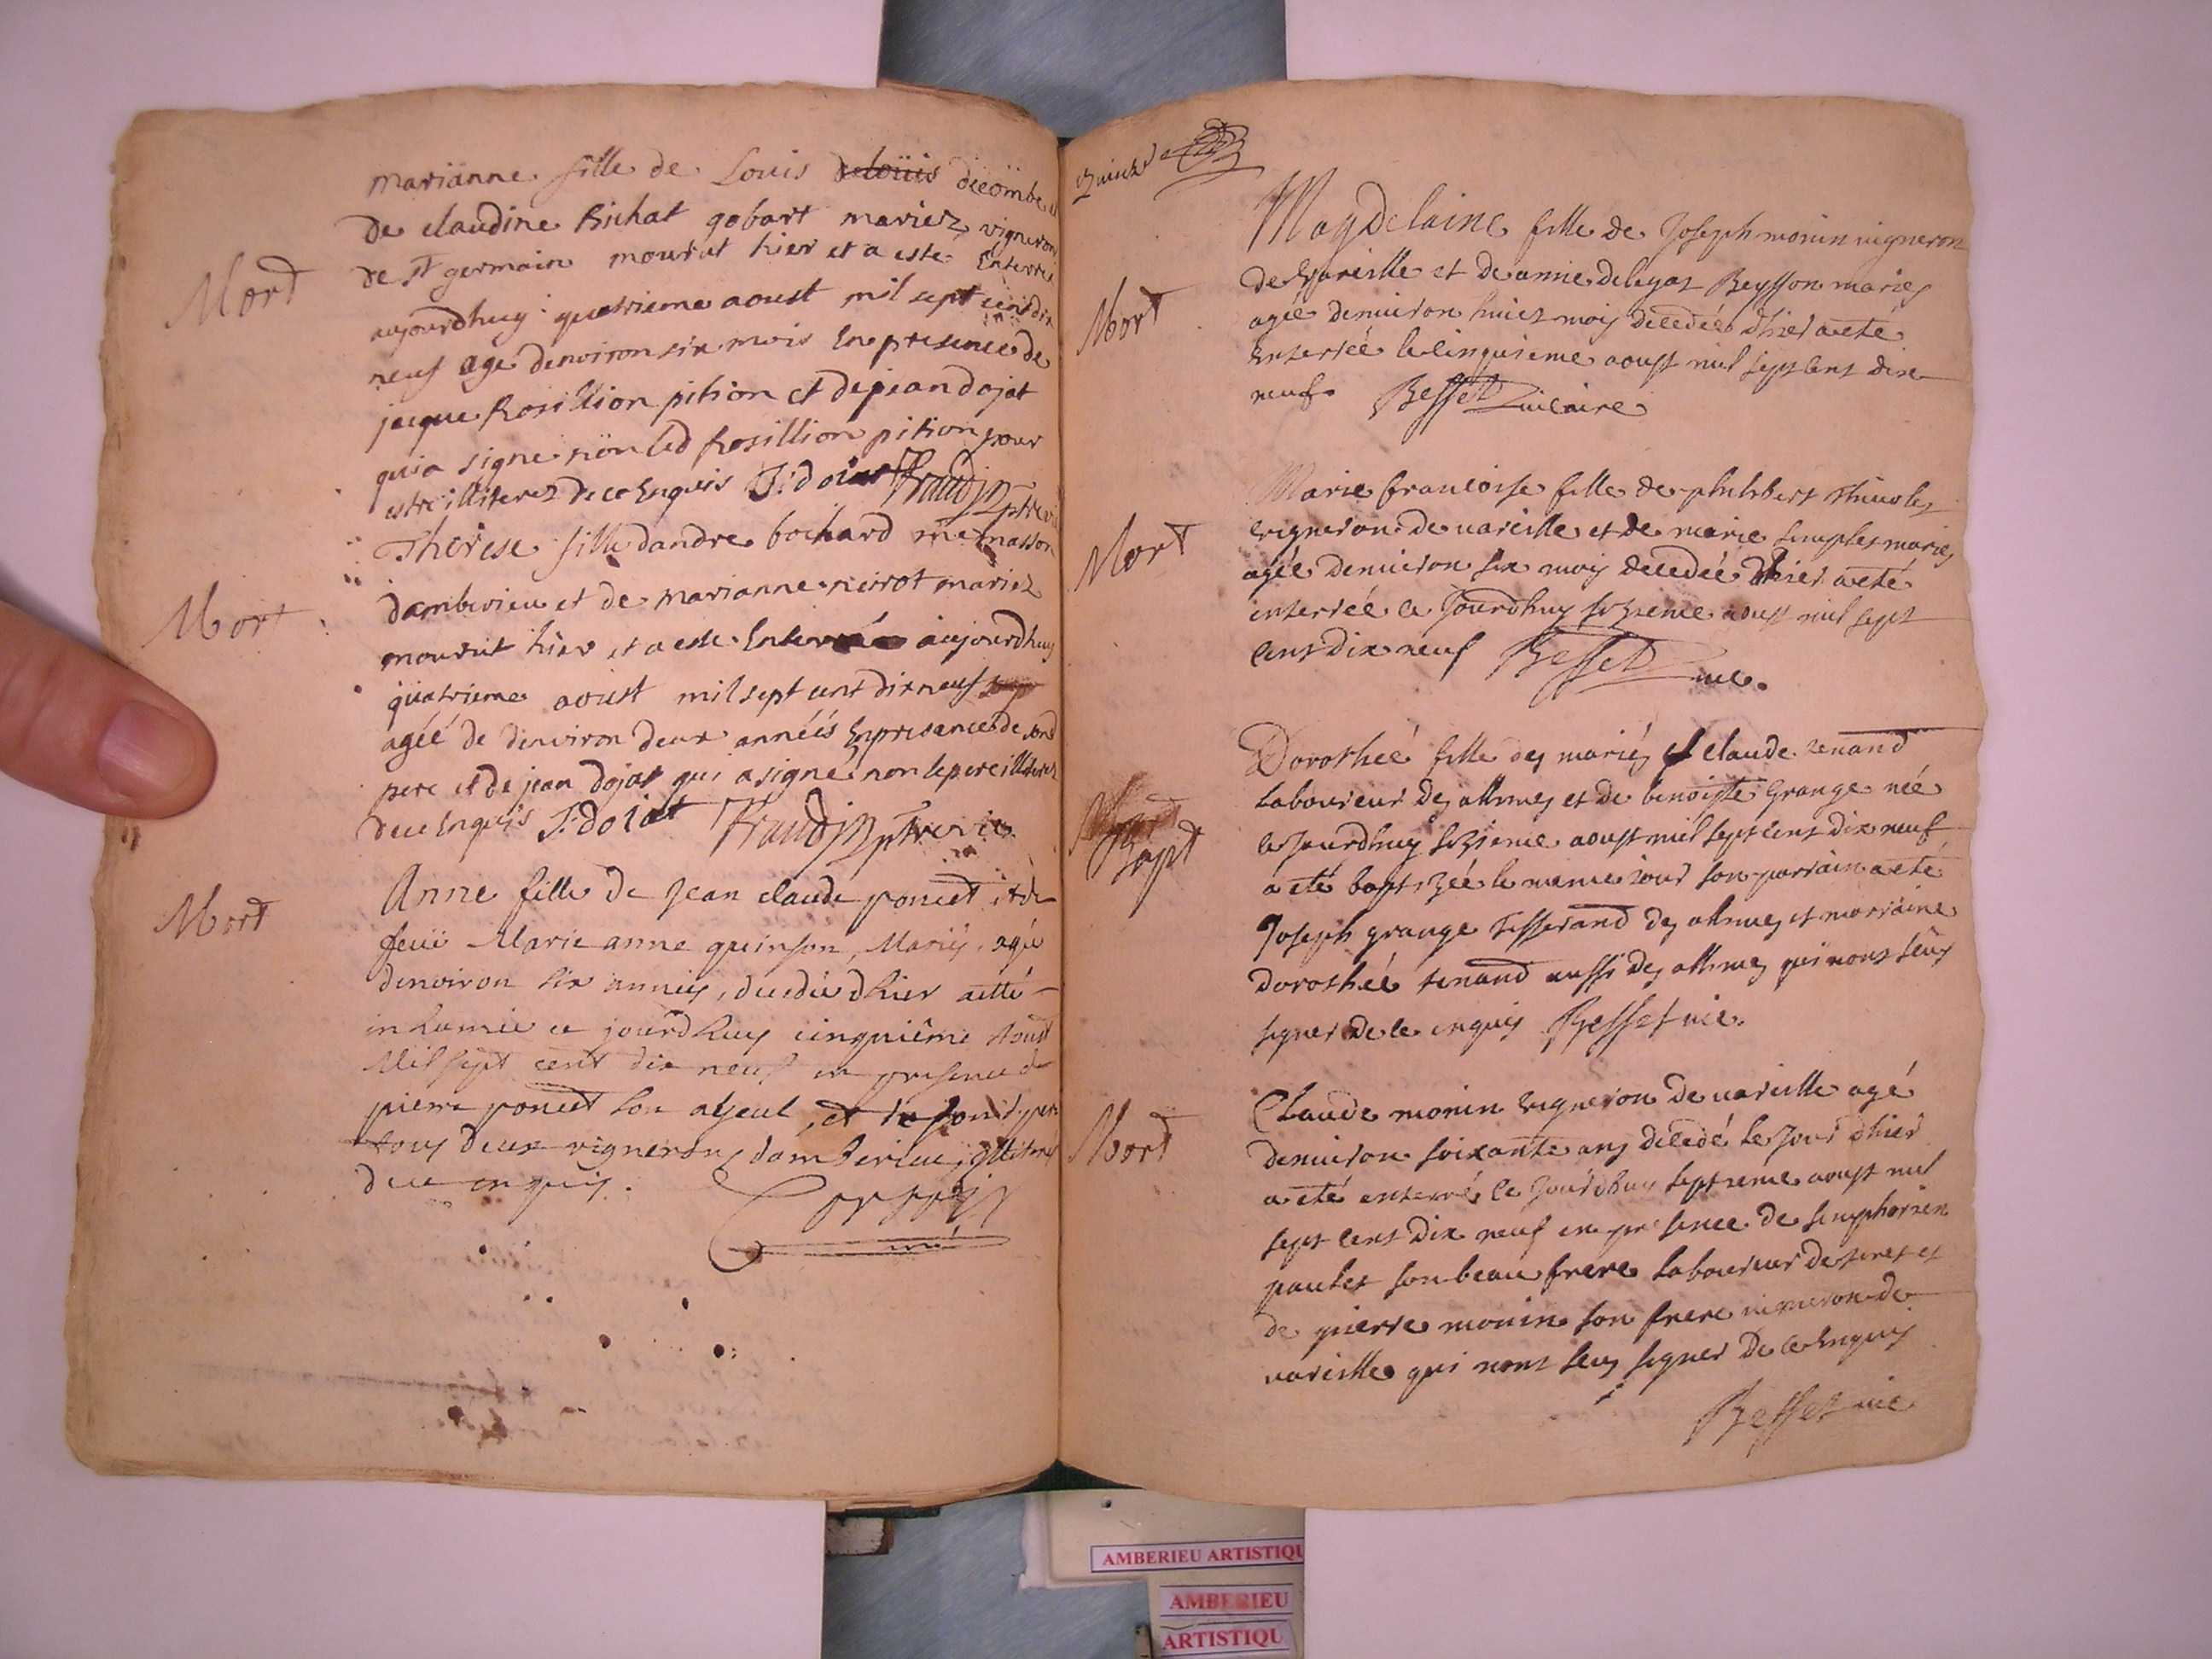 Mort
marianne fille de Louis delouis decombe et
de claudine Richat gobart mariez vigneron
de st germain mourut hier et a este Enterrée
aujourdhuy quatrieme aoust mil sept cent dix
neuf agé denviron six mois En presence de
jacque Rosillion pition et de jean dojat
qui a signé non led Rosillion pition pour
estre illiterez de ce Enquis J: dojat
Mort
Therese fille dandre bochard me masson
damberieu et de marianne pierrot mariez
mourut hier et a este Enterrée aujourdhuy
quatrieme aoust mil sept cent dix neuf
agéé de denviron deux annéés En presance de son
pere et de jean dojat qui a signé non le pere illiterez
de ce Enquis J: dojat
Mort
Anne fille de Jean claude poncet et de
feuë Marie anne quinson, Mariés, agée
denviron six années, decedée dhier a etté
inhumée ce jourdhuy cinquiême Aoust
Mil sept cent dix neuf en presence de
pierre poncet son ayeul, et
tous deux vignerons damberieu, illiterés
de ce enquis.
Mort
Magdelaine fille de Joseph monin vigneron
de Vareille et de annie delegas Beysson mariés
agée denuiron huict mois decedée dhier a eté
enterréé le cinquieme aoust mil sept cent dix
neuf. Besset vicaire
Mort
Marie francoise fille de philibert
vigneron de uareille et de marie mariés
agée denuiron six mois decedée dhier a eté
enterréé ce Jourdhuy sizieme aoust mil sept
cent dix neuf Besset vic.
Bapt
Dorotheé fille des mariés claude tenand
laboureur des allimes et de benoiste Grange néé
ce Jourdhuy sizieme aoust mil sept cent dix neuf
a eté baptizéé le meme iour son parrain a eté
Joseph grange tisserand des allimes et marraine
dorotheé tenand aussi des allimes qui nont seus
signer de ce enquis Besset vic.
Mort
Claude monin vigneron de uareille agé
denuiron soixante ans decedé le Jour dhier
a eté enterré ce Jourdhuy septieme aoust mil
sept cent dix neuf en presence de simphorien
paulet son beau frere laboureur de et
de pierre monin son frere vigneron de
uareille qui nont seus signer de ce Enquis
Besset vic
AMBERIEU ARTISTIQU
AMBERIEU
ARTISTIQU